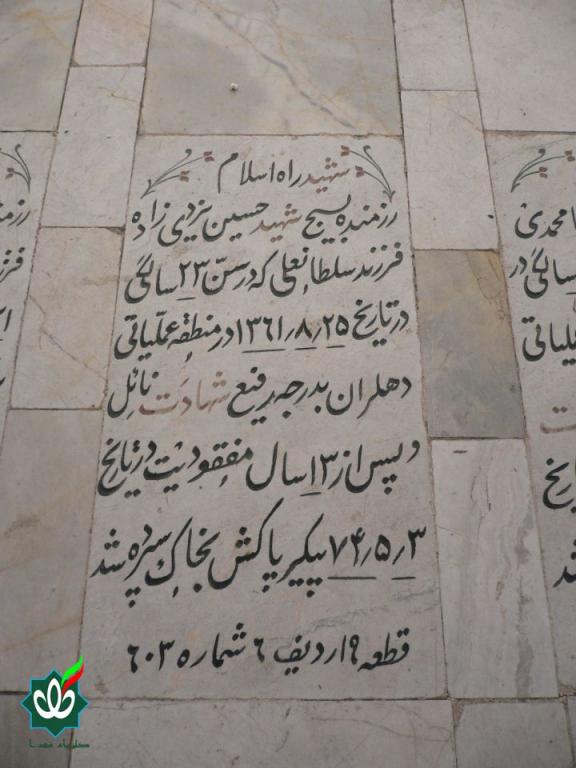 شهید راه اسلام
رزمنده بسیج شهید حسین یزدی زاده
فرزند سلطانعلی که در سن ۲۳ سالگی
در تاریخ ۱۳۶۱٫۸٫۲۵ در منطقه عملیاتی
دهلران بدرجه رفیع شهادت نائل
و پس از ۱۳ سال مفقودیت در تاریخ
۷۴٫۵٫۳ پیکر پاکش بخاک سپرده شد
قطعه ۱۹ ردیف ۶ شماره ۶۰۳